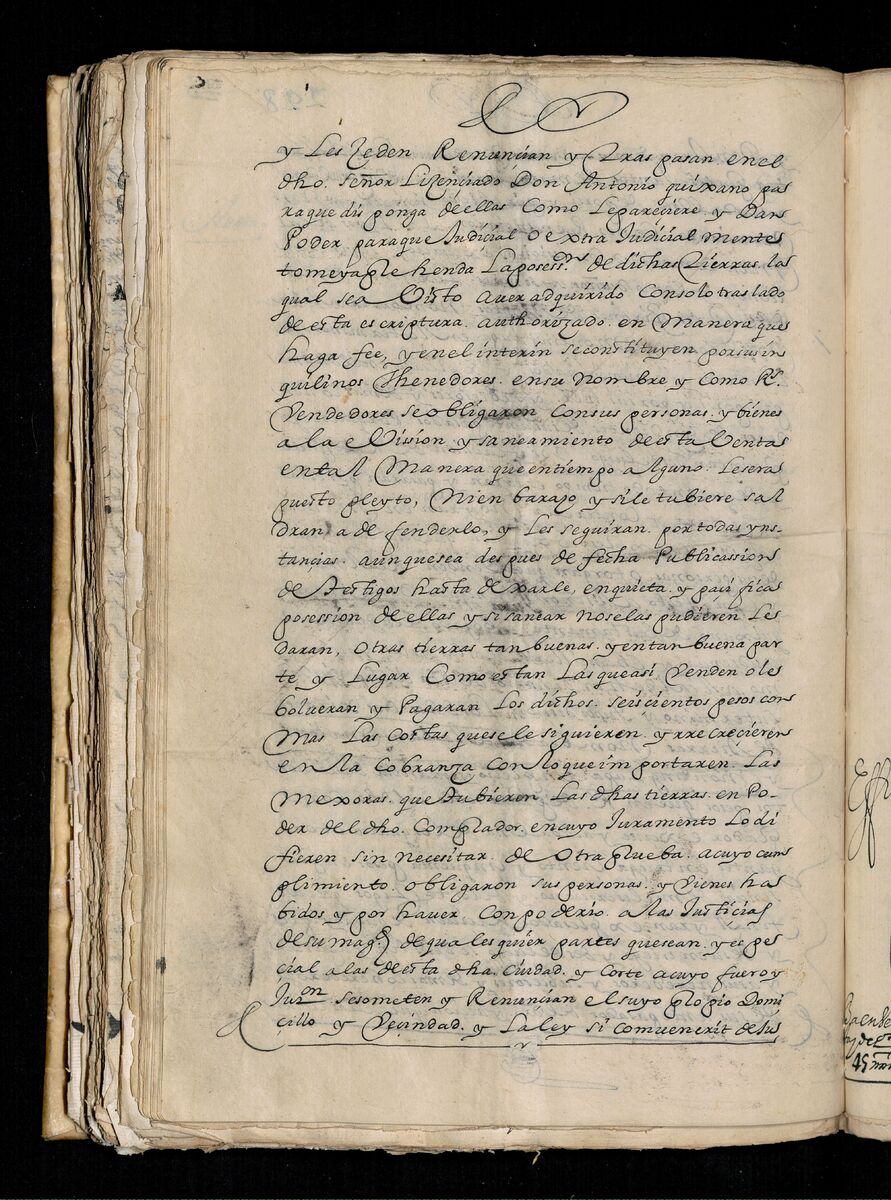 y Les Zeden Renuncian y tras pasan en el
dho. señor Lizenciado Don Antonio quixano pa
ra que dis ponga de ellas Como Le pareçiere y Dan
Poder para que Judiçial o extra Judicial mente
tome y aple henda La posess.on de dichas tierras. la
qual sea Visto aver adquirido Con solo traslado
de esta es criptura. authorizado. en Manera que
haga fee, y en el interin se constituyen por sus in
quilinos thenedores. en su nombre y Como R.s
Vendedores se obligaron Con sus personas. y bienes
a la eVission y saneamiento de esta Venta
en tal Manera que en tiempo alguno. le sera
puesto pleyto, Ni en barazo y si le tubiere sal
dran a de fenderlo, y Les seguiran. por todas yns-
tancias. aunque sea des pues de fecha Publicassion
de testigos hasta dexarle, en quieta. y paci fica
posession de ellas y si sanear no se las pudieren Les
daran, otras tierras tan buenas. y en tan buena par
te y Lugar Como estan Las que asi Venden o les
bolueran y Pagaran Los dichos. seisçientos pesos con
Mas Las Costas que se le siguieren. y rrecreçieren
en la Cobranza Con lo que im portaren. Las
Mexoras. que tubieren Las dhas tierras. en Po-
der del dho. Complador. en cuyo Juramento Lo di
fieren sin necesitar. de otra plueba. a cuyo cum
plimiento. obligaron sus personas. y Vienes ha
bidos y por haver. Con poderio a las Justicias
de su mag.d de quales quier partes que sean. y es pe
cial a las de esta dha. Ciudad. y Corte a cuyo fuero y
Jur.on se someten y Renuncian el suyo plopio Domi
çilio y Veçindad. y La ley si comuenerit de Jus